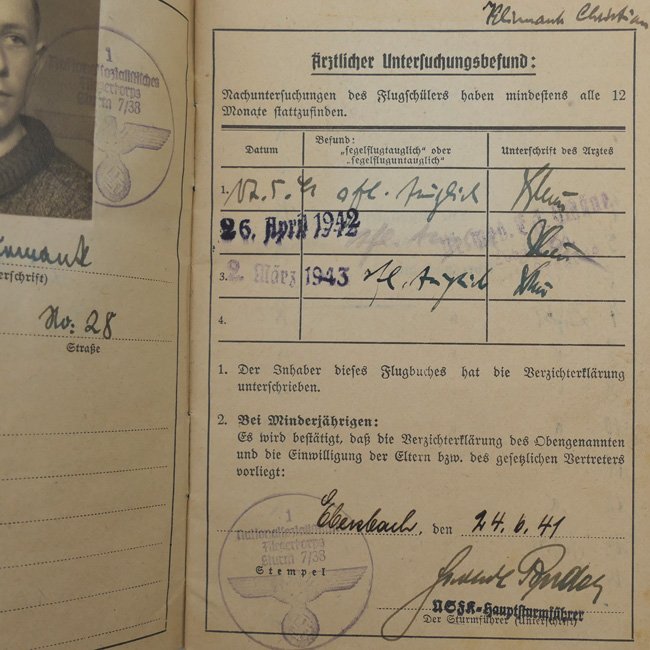 1
Nationalsozialistisches
Fliegerkorps
Sturm 7/38
erschrift)
No: 28
Straße
Klimank Christian
Ärztlicher Untersuchungsbefund:
Nachuntersuchungen des Flugschülers haben mindestens alle 12
Monate stattzufinden.
Datum
Befund:
„segelflugtauglich“ oder
„segelfluguntauglich“
Unterschrift des Arztes
1. sfl. tauglich
26. April 1942 sfl.
3. 2 März 1943 sfl. tauglich
4.
1. Der Inhaber dieses Flugbuches hat die Verzichterklärung
unterschrieben.
2. Bei Minderjährigen:
Es wird bestätigt, daß die Verzichterklärung des Obengenannten
und die Einwilligung der Eltern bzw. des gesetzlichen Vertreters
vorliegt:
Ebersbach, den 24.6.41
1
Nationalsozialistisches
Fliegerkorps
Sturm 7/38
Stempel
NSFK-Hauptsturmführer
Der Sturmführer (Unterschrift)